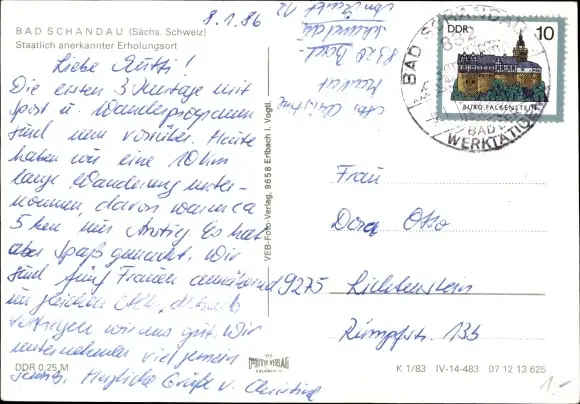 8.1.86
BAD SCHANDAU (Sächs. Schweiz)
Staatlich anerkannter Erholungsort
Liebe Mutti!
Die ersten 3 Kurtage mit
Sport u. Wanderprogramm
sind nun vorüber. Heute
haben wir eine 10 km
lange Wanderung unter-
nommen, davon waren ca
5 km nur Anstieg. Es hat
aber Spaß gemacht. Wir
sind fünf Frauen annähernd
im gleichen Alter, deshalb
vertragen wir uns gut. Wir
unternehmen viel gemein
sames. Herzliche Grüße v. Christine
DDR 0,25 M
VEB-Foto-Verlag, 9658 Erlbach i. Vogtl.
8320 Bad-
Schandau
DDR 10
BURG FALKENSTEIN
BAD SCHANDAU 1
832
WERKTATIGE
Frau
Dora Otto
9275 Lichtenstein
Rümpfstr. 13b
FOTO VERLAG
ERLBACH
K 1/83 IV-14-483 07 12 13 625
1.-